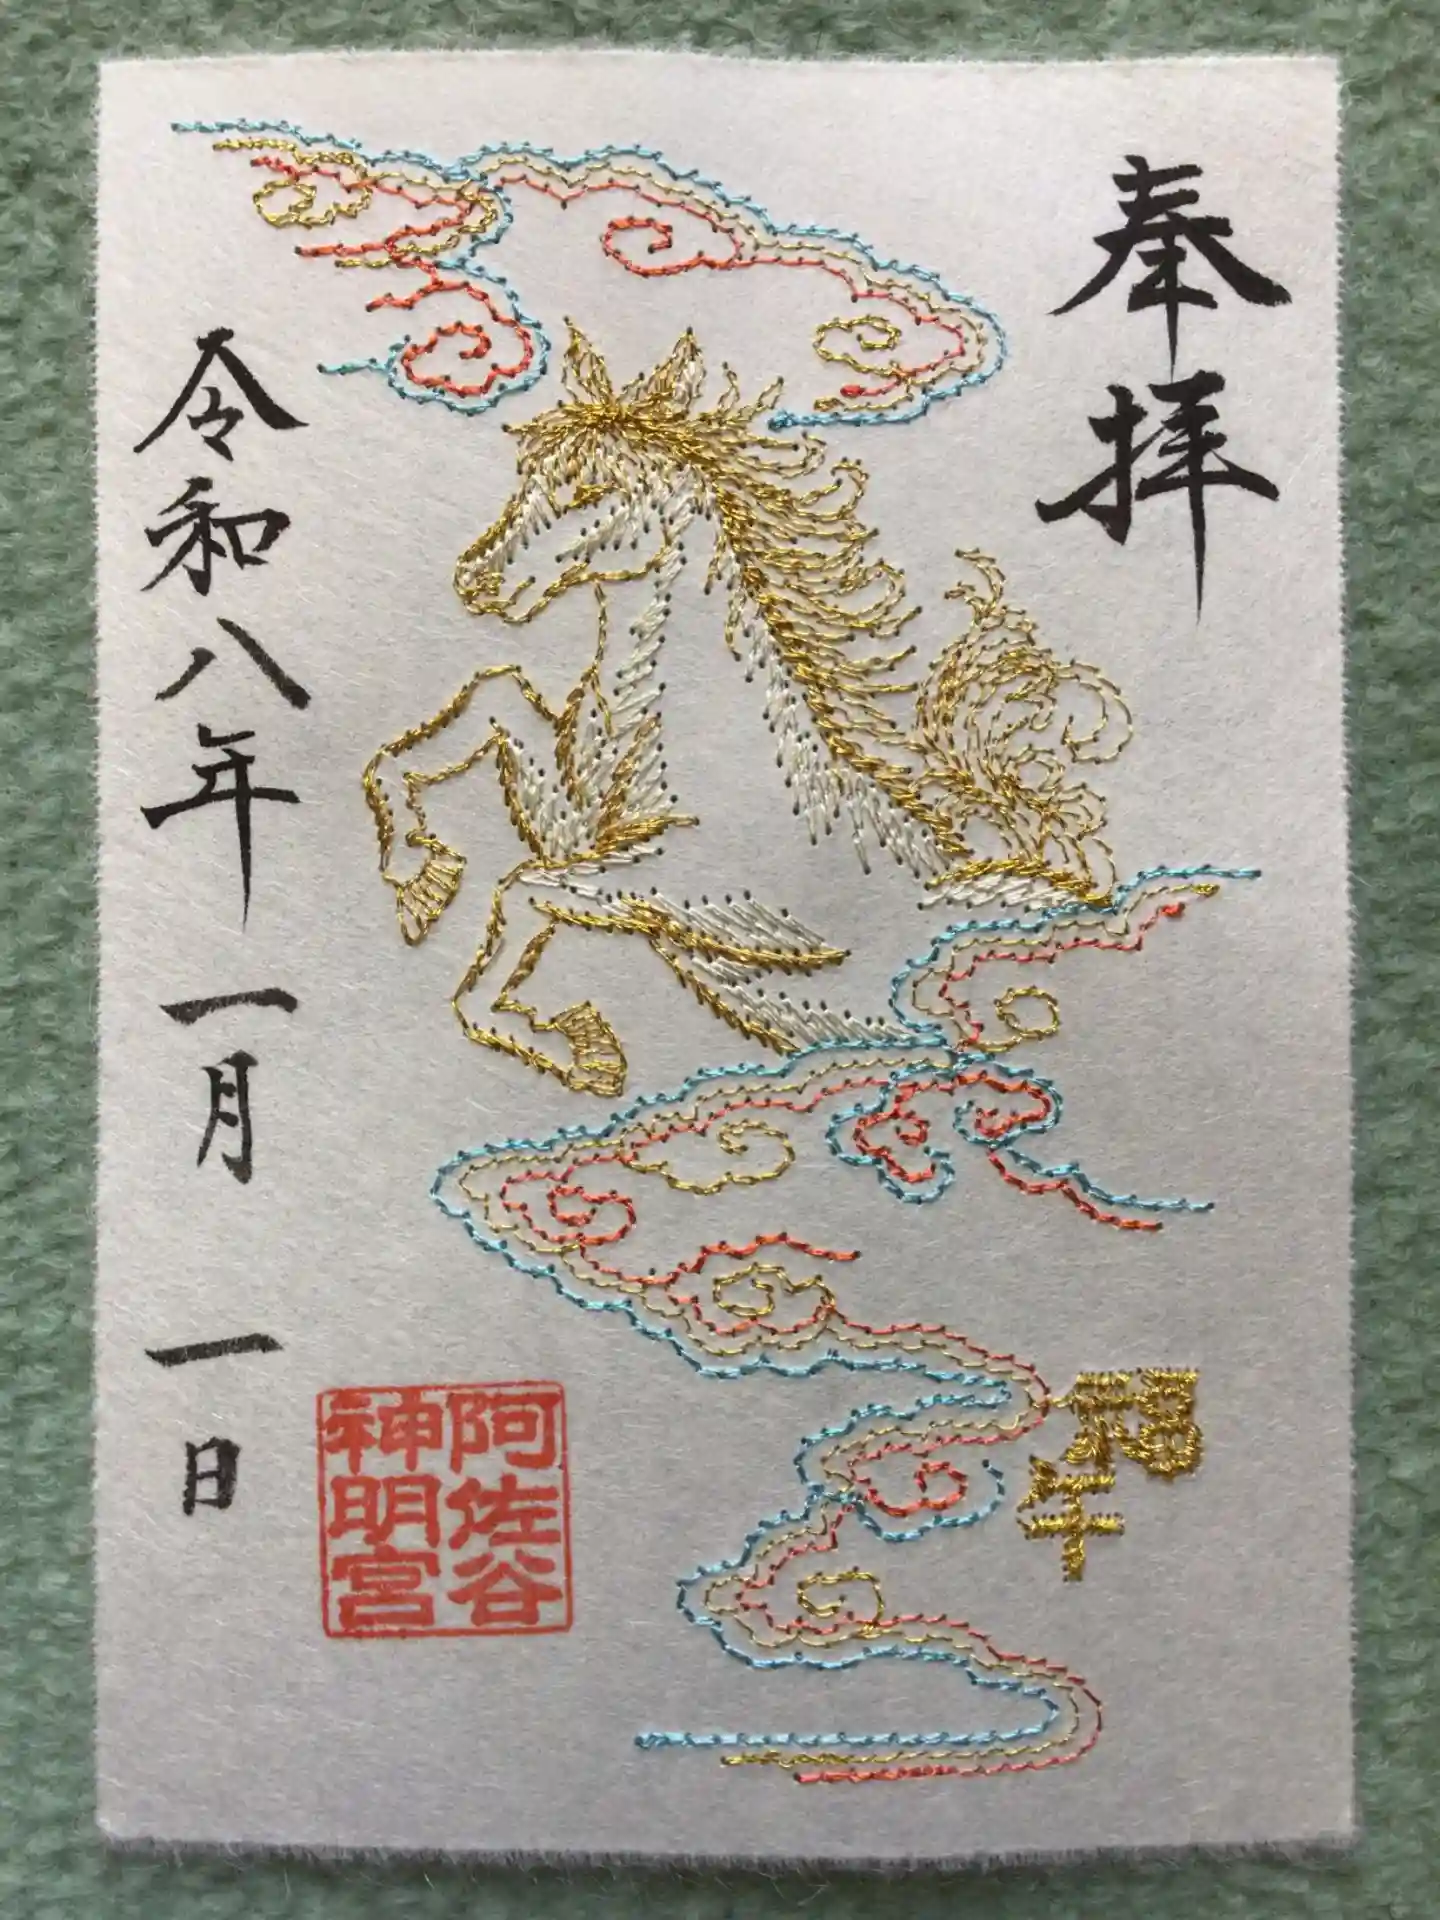 奉拝
招午
阿佐谷
神明宮
令和八年一月一日